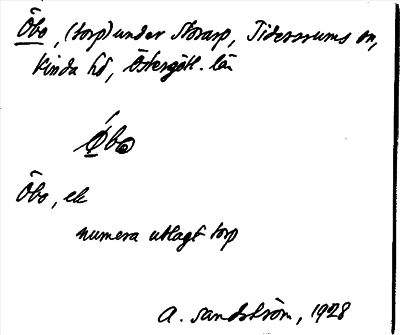 Öbo, (torp) under Storarp, Tidersrums sn,
Kinda hd, Östergötl. län
Öbo, ek
numera utlagt torp
A. Sandström, 1928